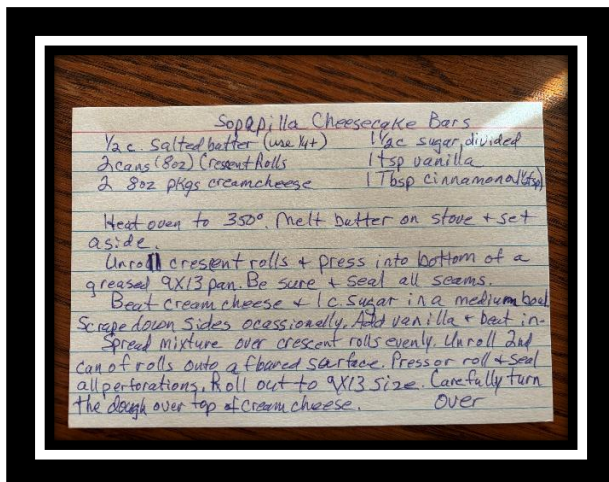 Sopapilla Cheesecake Bars
1/2 c. Salted batter (use 1/4+) 1 1/2c sugar, divided
2 cans (8oz) Cresent Rolls 1 tsp vanilla
2 8oz pkgs creamcheese 1 Tbsp cinnamon
Heat oven to 350°. Melt butter on stove + set
aside.
Unroll crescent rolls + press into bottom of a
greased 9X13 pan. Be sure + seal all seams.
Beat cream cheese + 1c. sugar in a medium bowl
Scrape down sides ocassionally. Add vanilla + beat in-
Spread mixture over crescent rolls evenly. Unroll 2nd
can of rolls onto a floured surface. Press or roll + seal
all perforations. Roll out to 9X13 size. Carefully turn
the dough over top of cream cheese. Over